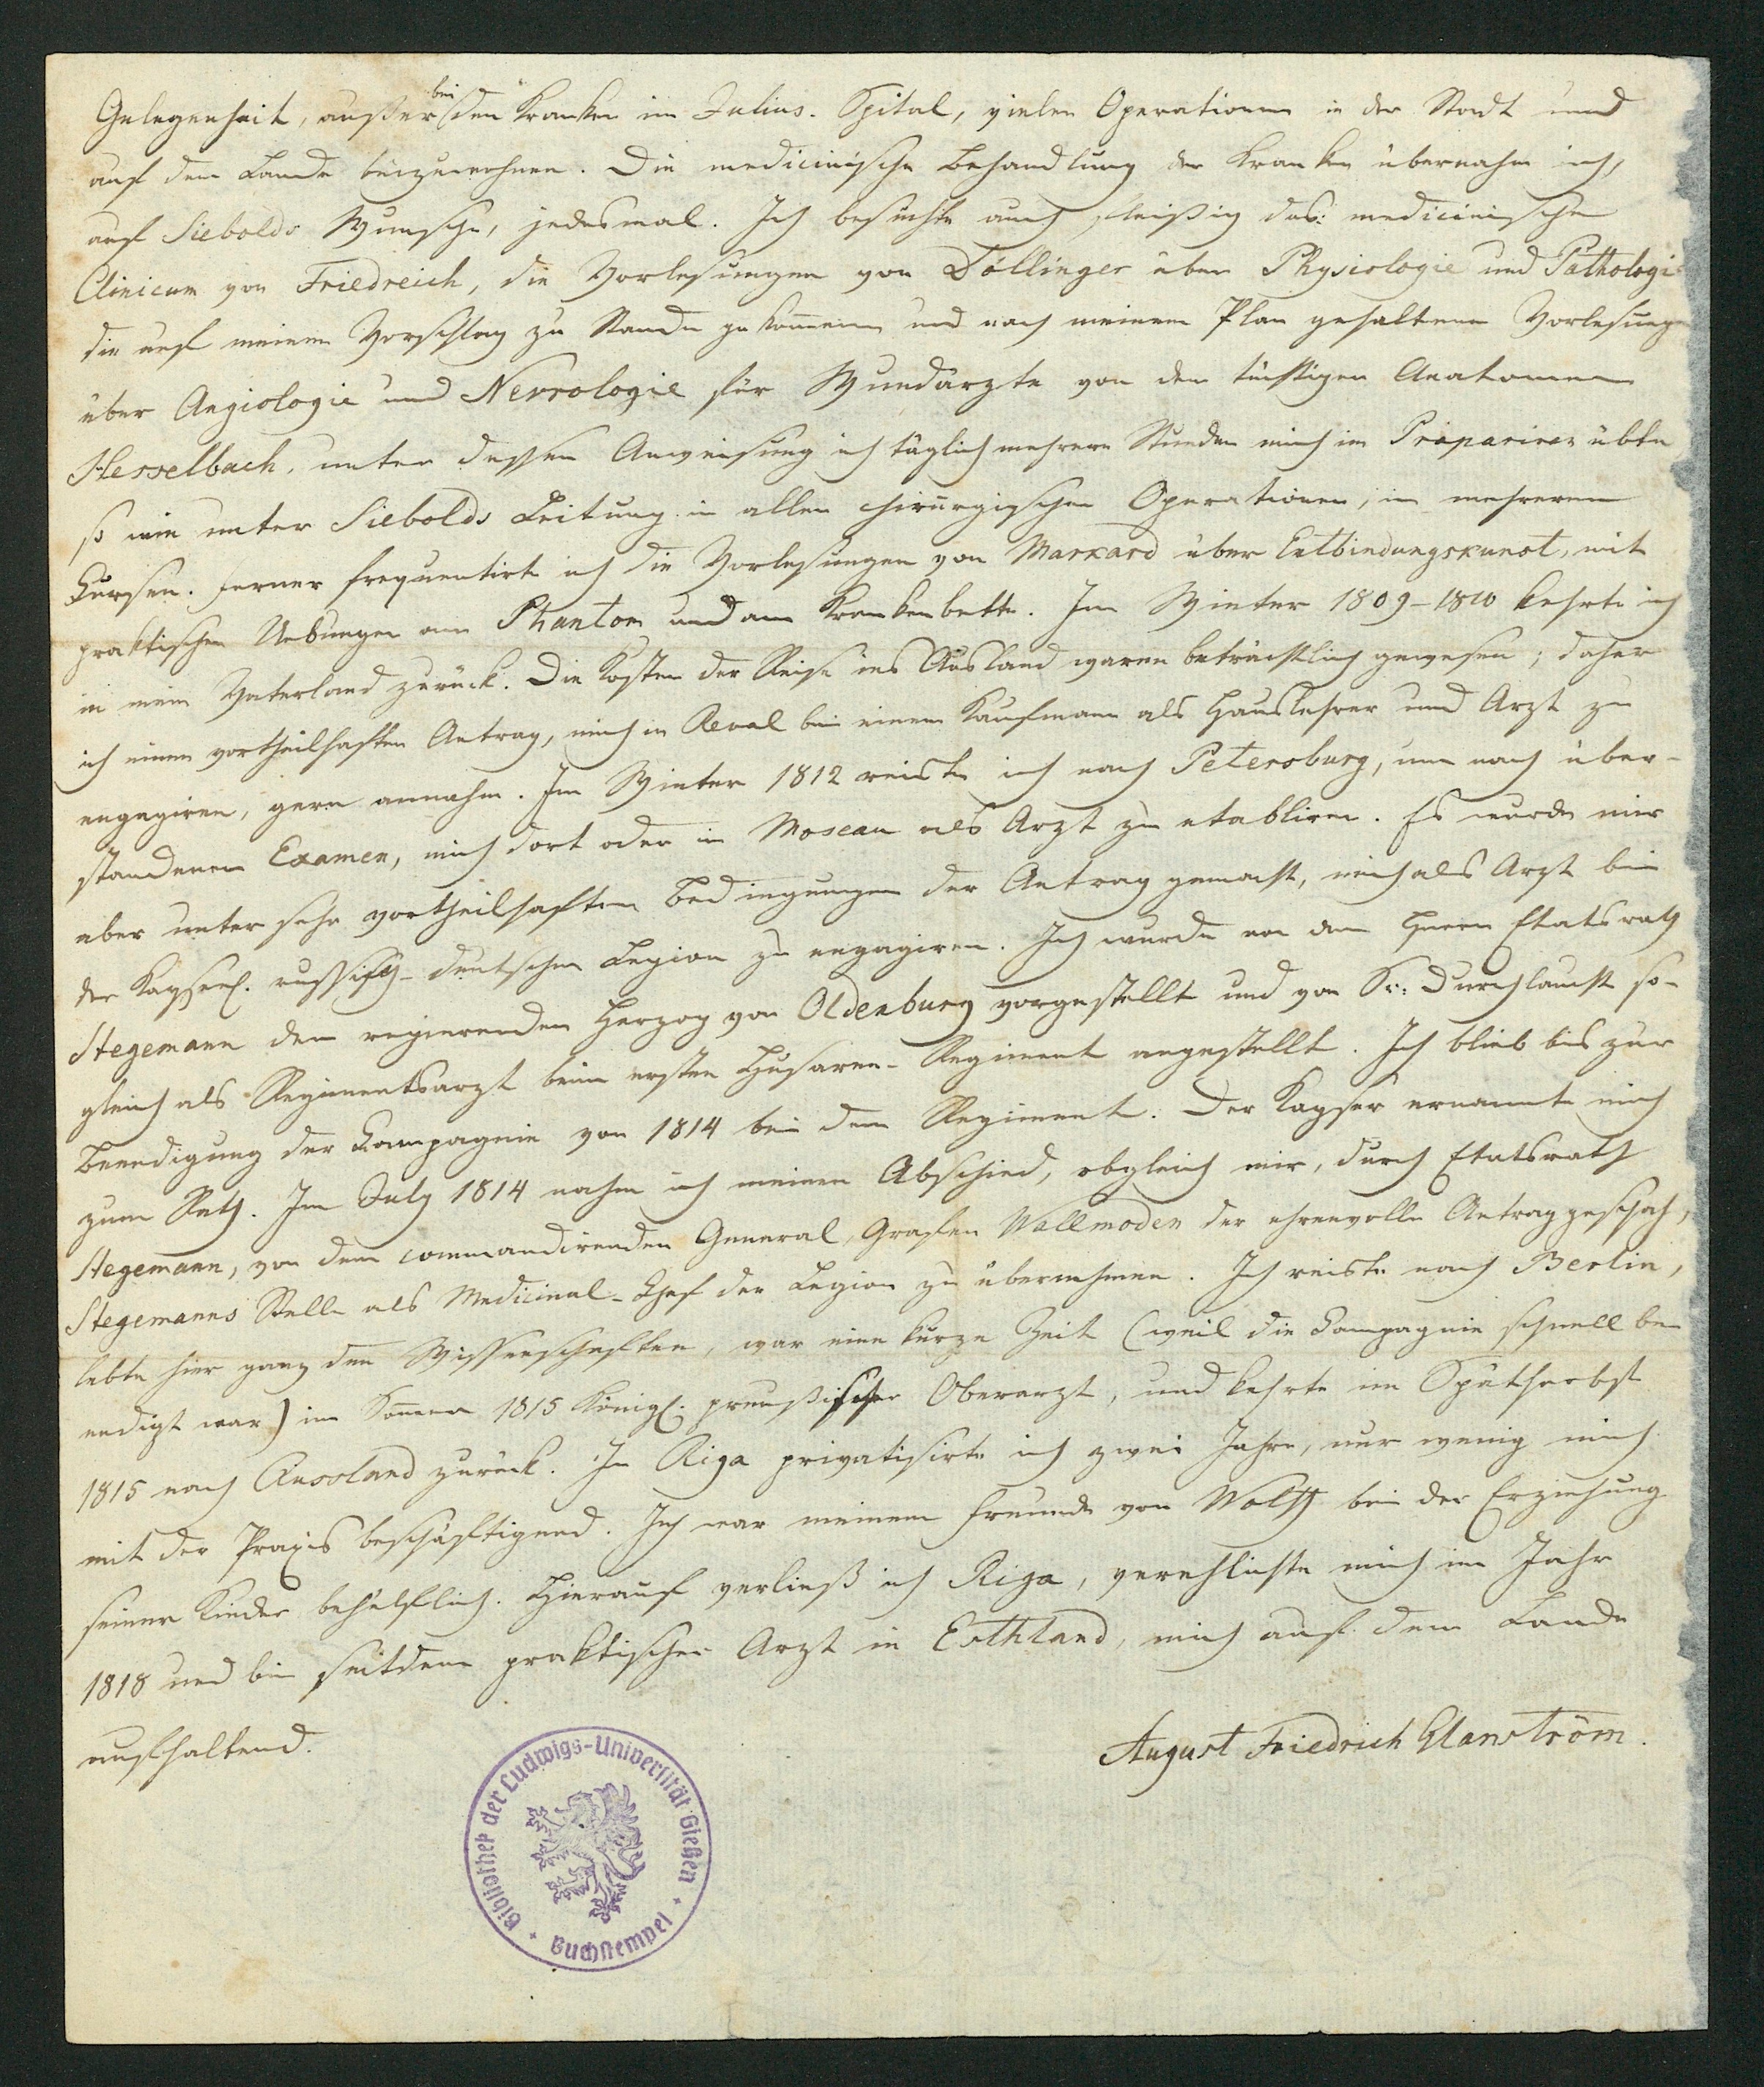 Gelegenheit, außer bei den Kranken im Julius-Spital, vielen Operationen in der Stadt und
auf dem Lande beizuwohnen. Die medicinische Behandlung der Kranken übernahm ich,
auf Siebolds Wunsche, jedesmal. Ich besuchte auch fleißig das medicinische
Clinicum von Friedreich, die Vorlesungen von Döllinger über Physiologie und Pathologie
die auf meinen Vorschlag zu Stande gekommen und nach meinem Plan gehaltenen Vorlesungen
über Angiologie und Nevrologie für Wundärzte von dem tüchtigen Anatomen
Hesselbach, unter dessen Anweisung ich täglich mehrere Stunden mich im Präpariren übte
so wie unter Siebolds Leitung in allen chirurgischen Operationen, in mehreren
Cursen. Ferner frequentirte ich die Vorlesungen von Markard über Entbindungskunst, mit
praktischen Uebungen am Phantom und am Krankenbette. Im Winter 1809-1810 kehrte ich
in mein Vaterland zurück. Die Kosten der Reise ins Ausland waren beträchtlich gewesen; daher
ich einen vortheilhaften Antrag, mich in Reval bei einem Kaufmann als Hauslehrer und Arzt zu
engagiren, gern annahm. Im Winter 1812 reiste ich nach Petersburg, um nach über-
standenem Examen, mich dort oder in Moscau als Arzt zu etabliren. Es wurde mir
aber unter sehr vortheilhaften Bedingungen der Antrag gemacht, mich als Arzt bei
der Kayserl. russisch-deutschen Legion zu engagiren. Ich wurde von dem Herrn Etatsrath
Stegemann dem regierenden Herzog von Oldenburg vorgestellt und von Sr: Durchlaucht so-
gleich als Regimentsarzt beim ersten Husaren-Regiment angestellt. Ich blieb bis zur
Beendigung der Campagnie von 1814 bei dem Regiment. Der Kayser ernannte mich
zum Rath. Im July 1814 nahm ich meinen Abschied, obgleich mir, durch Etatsrath
Stegemann, von dem commandirenden General, Grafen Wallmoden der ehrenvolle Antrag geschah,
Stegemanns Stelle als Medicinal-Chef der Legion zu übernehmen. Ich reiste nach Berlin,
lebte hier ganz den Wissenschaften, war eine kurze Zeit (weil die Campagnie schnell be-
endigt war) im Sommer 1815 Königl. preußischer Oberarzt, und kehrte im Spätherbst
1815 nach Russland zurück. In Riga privatisirte ich zwei Jahre, nur wenig mich
mit der Praxis beschäftigend. Ich war meinem Freunde von Wolff bei der Erziehung
seiner Kinder behülflich. Hierauf verließ ich Riga, verehlichte mich im Jahr
1818 und bin seitdem praktischer Arzt in Esthland, mich auf dem Lande
aufhaltend.
August Friedrich Glanström.
Bibliothek der Ludwigs-Universität Gießen
Buchstempel